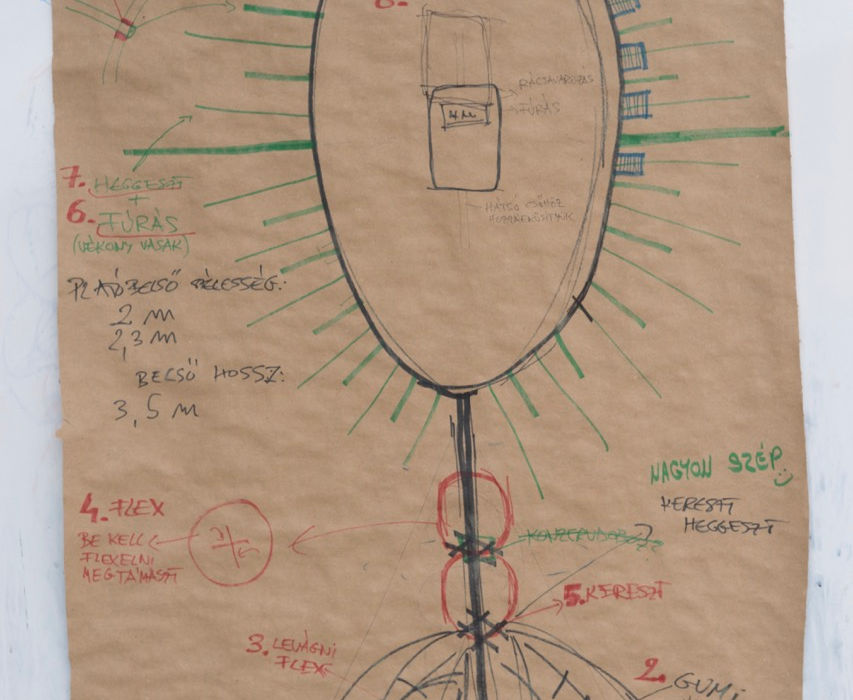 8.
FÚRÁS
7. HEGGESZT
+
6. FÚRÁS
(VÉKONY VASAK)
HÁTSÓ CSŐHÖZ
BELSŐ SZÉLESSÉG:
2 m
2,3 m
BELSŐ HOSSZ:
3,5 m
NAGYON SZÉP
KERESZT
HEGGESZT
4. FLEX
BE KELL
FLEXELNI
MEGTÁMASZT
5. KERESZT
3. LEVÁGNI
FLEX
2. GUMI